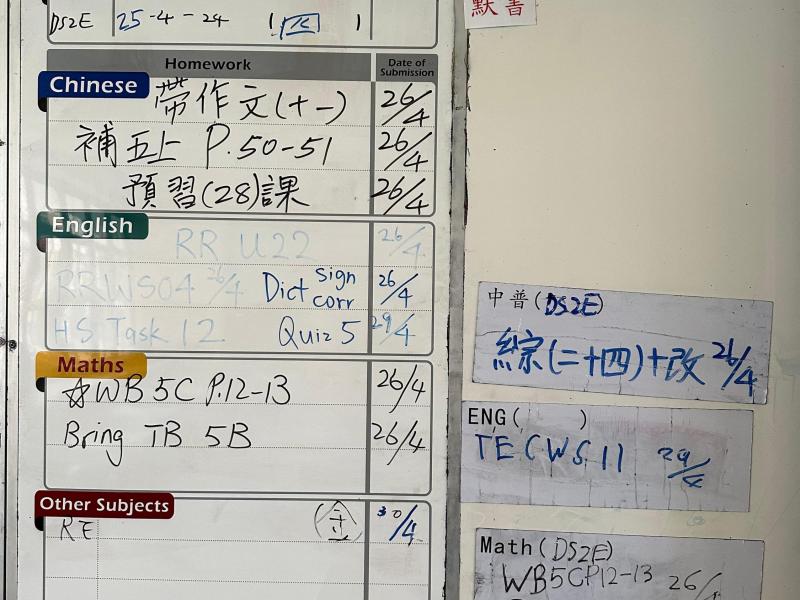 默書
DS2E 25-4-24 1 四 1
Homework Date of Submission
Chinese
帶作文(十一) 26/4
補五上 P.50-51 26/4
預習(28)課 26/4
English
RR U22 26/4
RRWS04 26/4 Dict sign corr 26/4
HS Task 12 Quiz 5 29/4
Maths
☆WB 5C P.12-13 26/4
Bring TB 5B 26/4
Other Subjects
RE (金) 30/4
中普(DS2E)
綜(二十四)+改 26/4
ENG( )
TECWS 11 29/4
Math(DS2E)
WB5CP12-13 26/